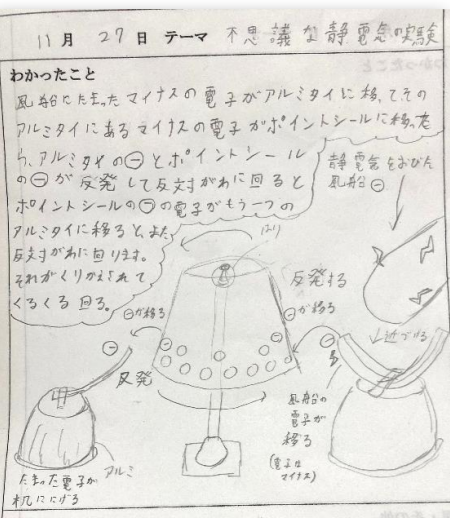 11月27日 テーマ 不思議な静電気の実験
わかったこと
風船にたまったマイナスの電子がアルミタイに移ってその
アルミタイにあるマイナスの電子がポイントシールに移った
ら、アルミタイの⊖とポイントシール
の⊖が反発して反対がわに回ると
ポイントシールの⊖の電子がもう一つの
アルミタイに移ると、また
反対がわに回ります。
それがくりかえされて
くるくる回る。
静電気をおびた
風船⊖
はり
反発する
⊖が移る
⊖が移る
⊖
反発
↓近づける
⊖
風船の
電子が
移る
(電子は
マイナス)
アルミ
たまった電子が
机ににげる